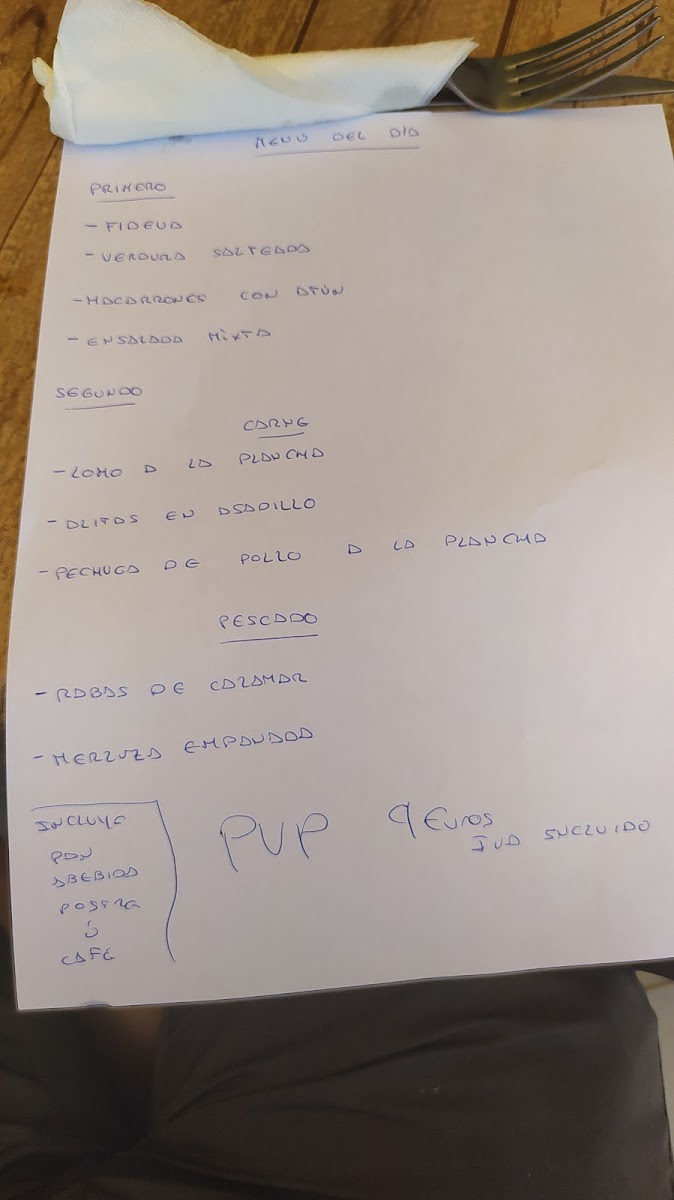 MENU DEL DIA
PRIMERO
- FIDEUA
- VERDURA SALTEADA
- MACARRONES CON ATÚN
- ENSALADA MIXTA
SEGUNDO
CARNE
- LOMO A LA PLANCHA
- ALITAS EN ASADILLO
- PECHUGA DE POLLO A LA PLANCHA
PESCADO
- RABAS DE CALAMAR
- MERLUZA EMPANADA
INCLUYE
PAN
ABEBIDA
POSTRE
Ó
CAFE
PVP 9 EUROS
IVA INCLUIDO